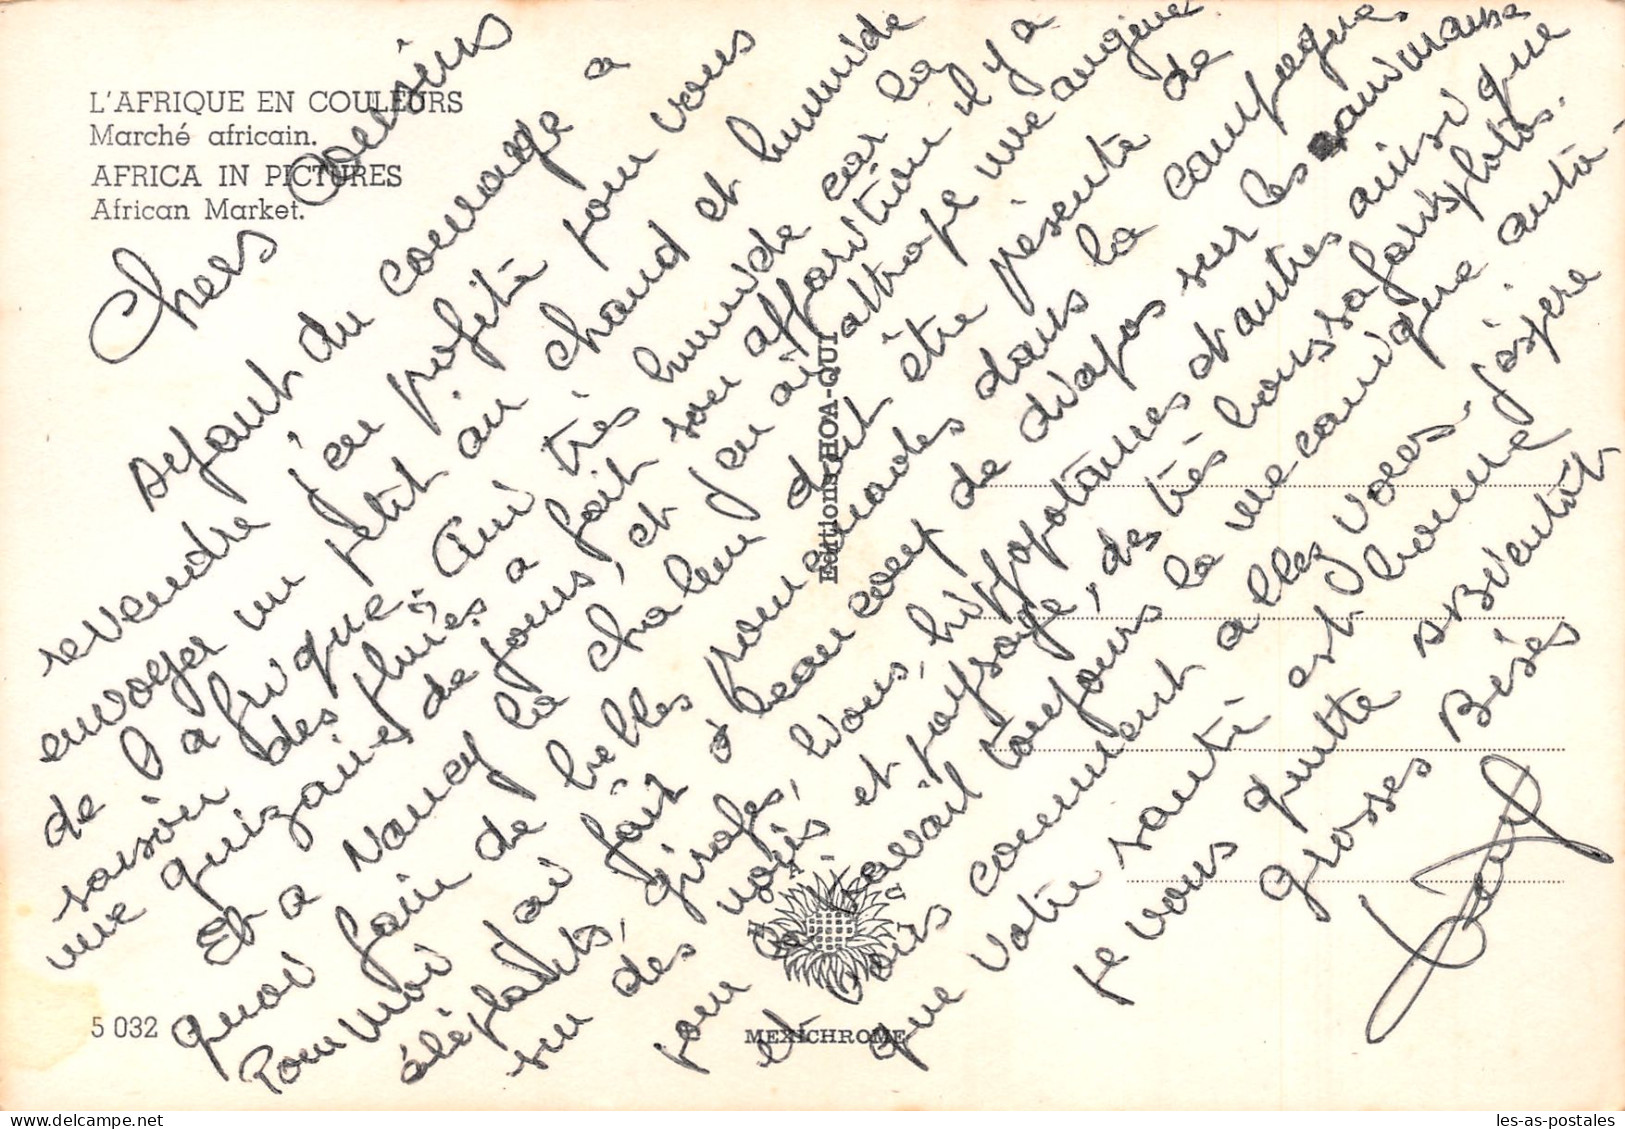 L'AFRIQUE EN COULEURS
Marché africain.
AFRICA IN PICTURES
African Market.
Chers cousins
Ayant du courage à
revendre j'en profité pour vous
envoyer un petit air chaud et humide
de l'afrique. Oui très humide car la
saison des pluies a fait son apparition il y a
une quizaine de jours, et j'en ai attrapé une angine
Et a Nancy la chaleur doit être présente de
quoi faire de belles promenades dans la campagne
Pour moi j'ai fait beaucoup de diapos sur les animaux
éléphants, girafes, lions, hippopotames et d'autres ainsi que
sur des et paysage, de très bons safaris photos.
pour le travail toujours la mecanique auto-
et vous comment allez vous. j'éspere
que votre santé est bonne
je vous quitte A Bientôt
grosses Bises
Editions HOA-QUI
5 032
MEXICHROME
les-as-postales